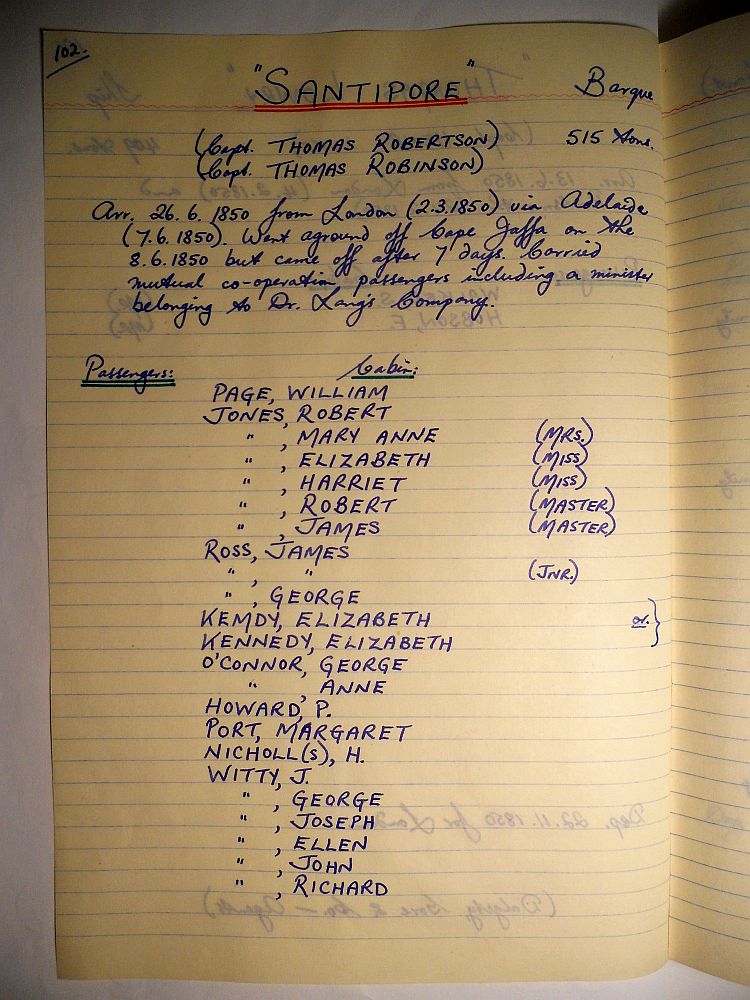 102.
"SANTIPORE" Barque
(Capt. THOMAS ROBERTSON) 515 tons.
(Capt. THOMAS ROBINSON)
Arr. 26. 6. 1850 from London (2.3.1850) via Adelaide
(7.6.1850). Went aground off Cape Jaffa on the
8.6.1850 but came off after 7 days. Carried
mutual co-operation passengers including a minister
belonging to Dr. Lang's Company.
Passengers: Cabin:
PAGE, WILLIAM
JONES, ROBERT
" , MARY ANNE (MRS.)
" , ELIZABETH (MISS)
" , HARRIET (MISS)
" , ROBERT (MASTER)
" , JAMES (MASTER)
ROSS, JAMES
" , " (JNR.)
" , GEORGE
KEMDY, ELIZABETH or. }
KENNEDY, ELIZABETH
O'CONNOR, GEORGE
" , ANNE
HOWARD, P.
PORT, MARGARET
NICHOLL(S), H.
WITTY, J.
" , GEORGE
" , JOSEPH
" , ELLEN
" , JOHN
" , RICHARD